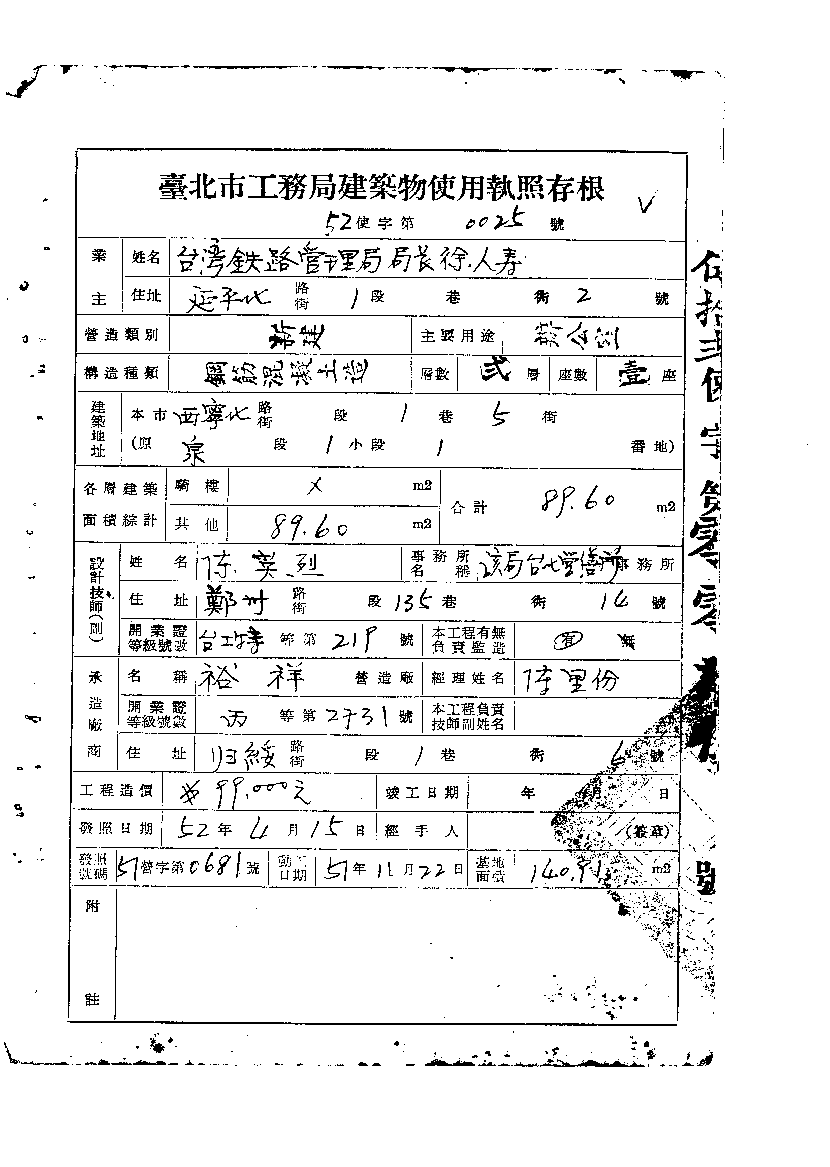 臺北市工務局建築物使用執照存根
52使字第 0025 號
業主 姓名 台湾鉄路管理局局長徐人寿
住址 延平北 路街 1 段 巷 街 2 號
營造類別 新建 主要用途 辦公室
構造種類 鋼筋混凝土造 層數 弍 層 座數 壹 座
建築地址 本市 西寧北 路街 段 1 巷 5 街
(原 泉 段 1 小段 1 番地)
各層建築面積綜計 騎樓 × m2 合計 89.60 m2
其他 89.60 m2
設計技師(副) 姓名 陳英烈 事務所名稱 該局台北營繕所 事務所
住址 鄭州 路街 段 135 巷 街 14 號
開業證等級號數 台工技 等第 219 號 本工程有無負責監造 有 無
承造廠商 名稱 裕祥 營造廠 經理姓名 陳里份
開業證等級號數 丙 等第 2731 號 本工程負責技師副姓名
住址 归綏 路街 段 1 巷 街 6 號
工程造價 99,000元 竣工日期 年 月 日
發照日期 52 年 4 月 15 日 經手人 (簽章)
發照號碼 51營字第0681號 動工日期 51年11月22日 基地面積 140.91 m2
附註
伍拾弍使字第零零 號